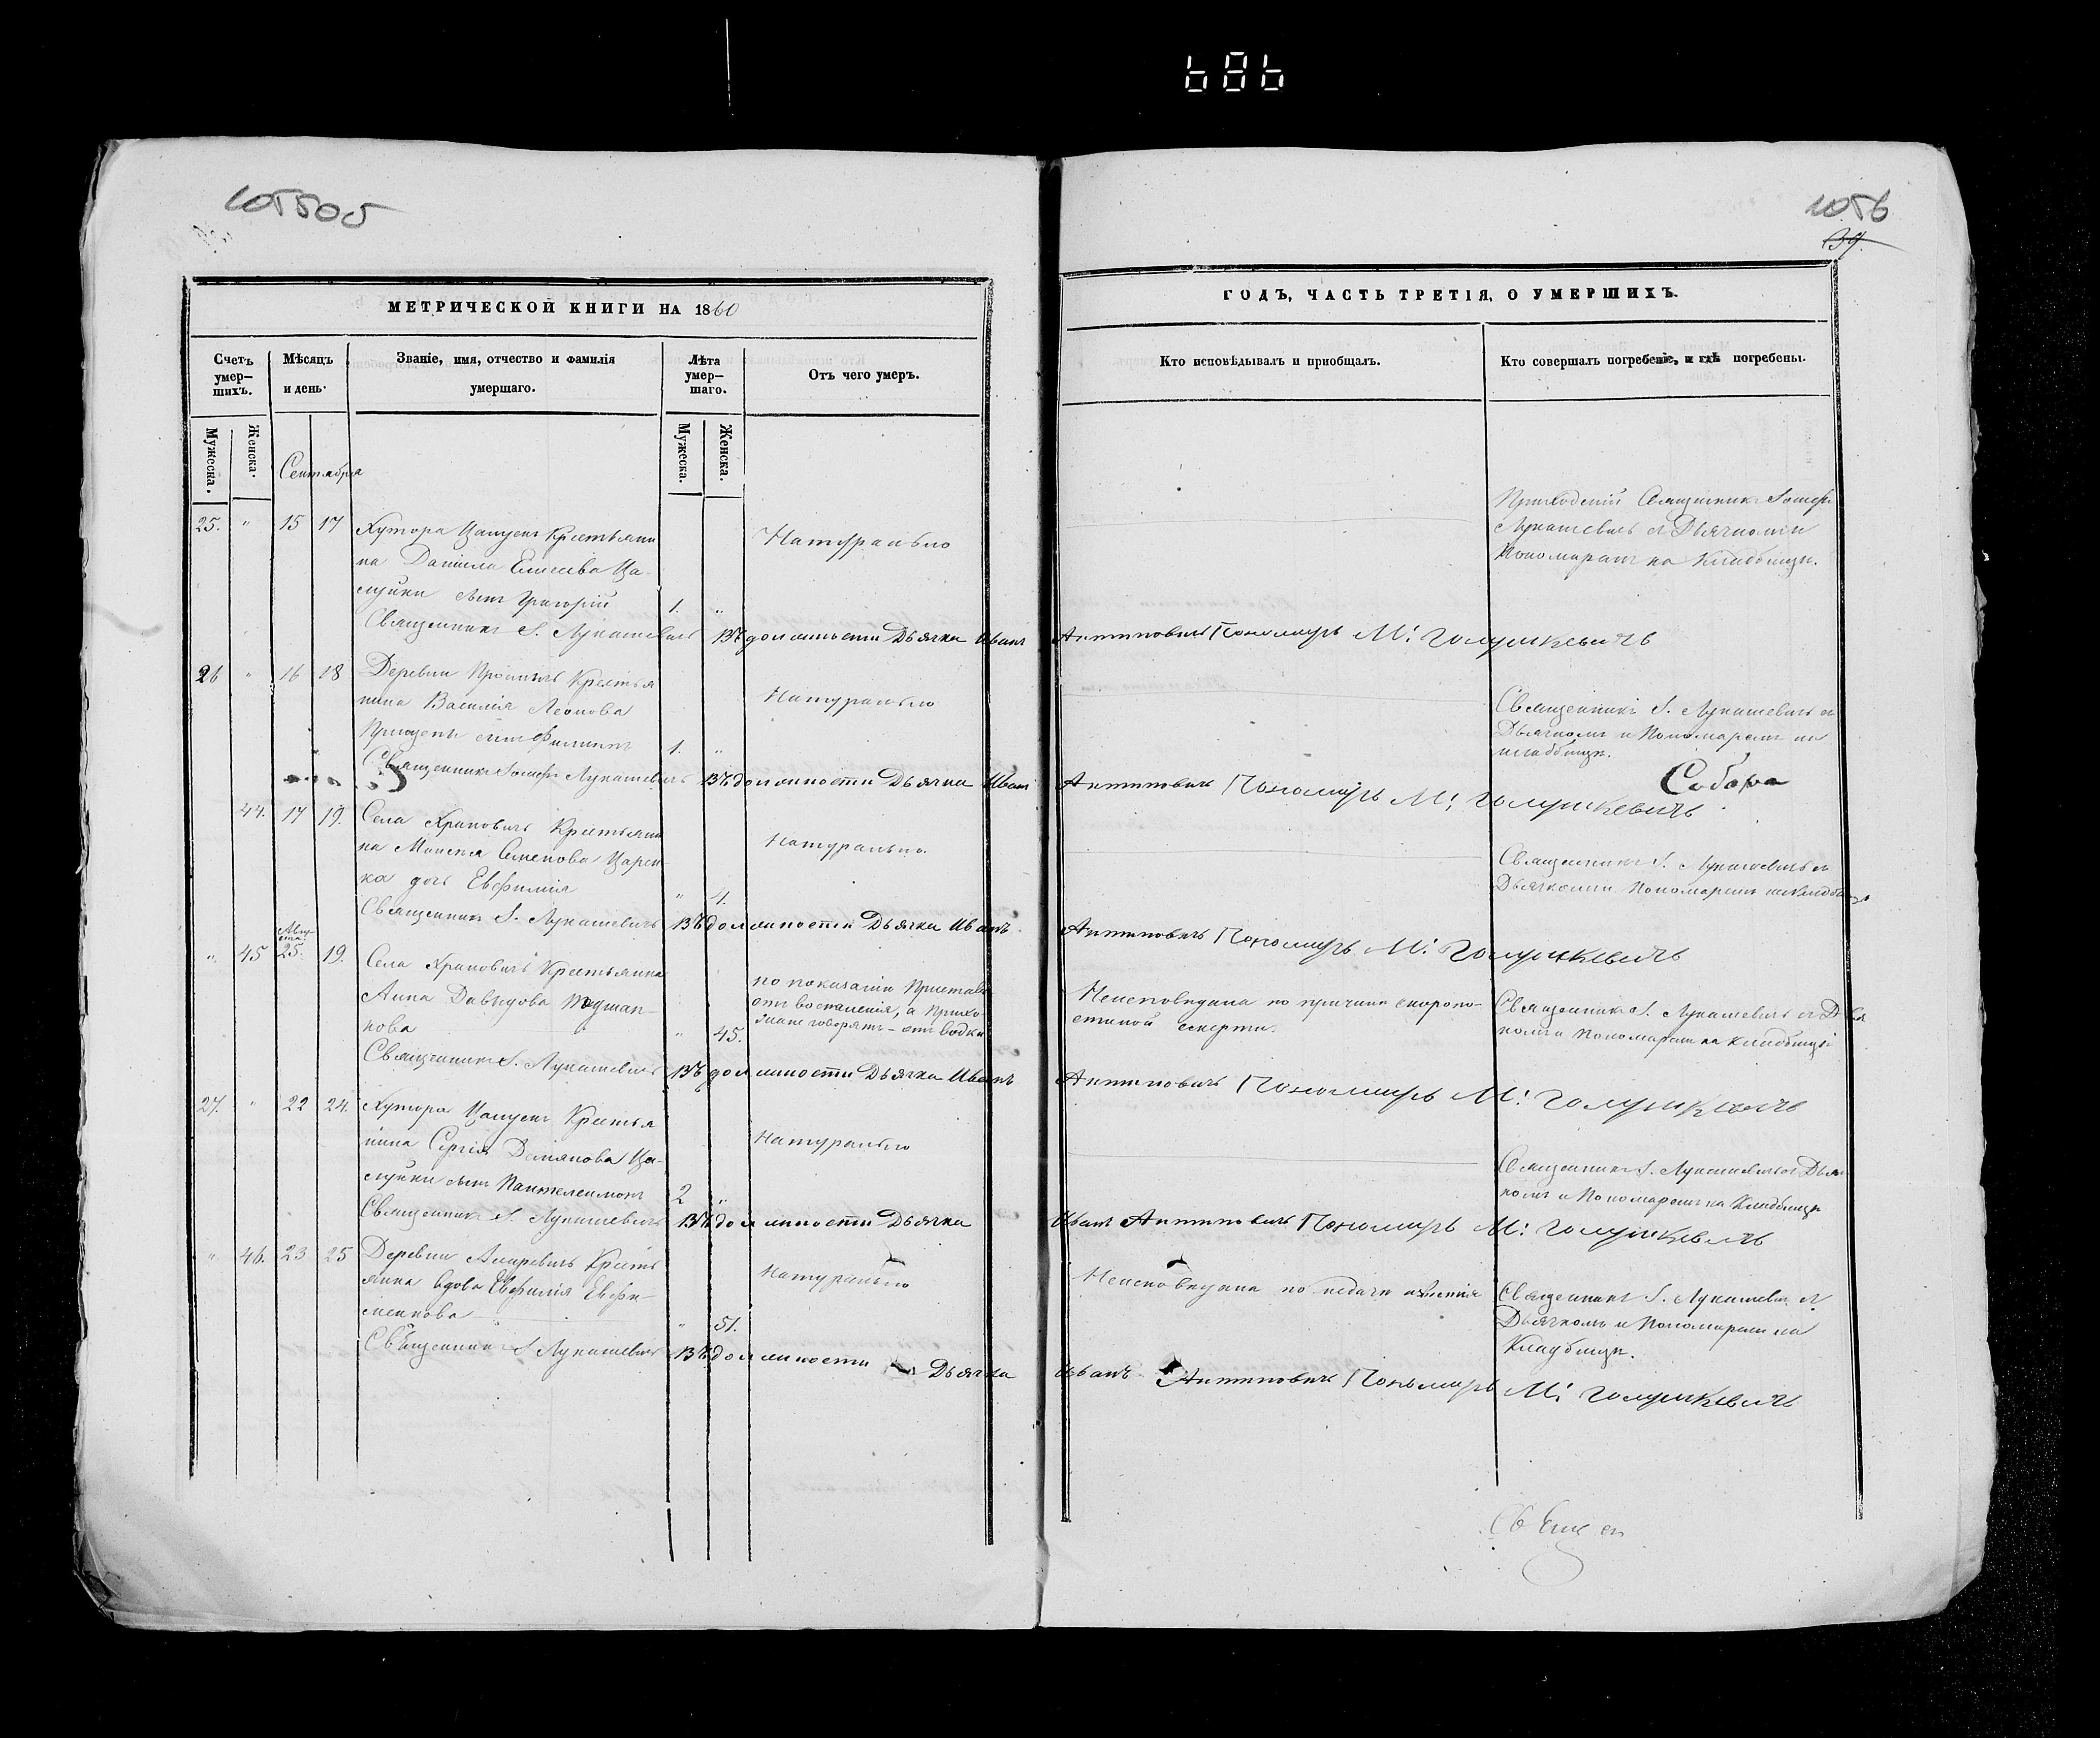 686
105505
1056
39.
МЕТРИЧЕСКОЙ КНИГИ НА 1860
ГОДЪ, ЧАСТЬ ТРЕТІЯ, О УМЕРШИХЪ.
Счетъ умер-шихъ.
Мѣсяцъ и день.
Званіе, имя, отчество и фамилія
умершаго.
Лѣта умер-шаго.
Отъ чего умеръ.
Кто исповѣдывалъ и пріобщалъ.
Кто совершалъ погребеніе, и гдѣ погребены.
Мужеска.
Женска.
Мужеска.
Женска.
Сентября
25. " 15 17
Хутора Цапуси Крестьяни
на Даніила Елисеева Ца-
пуйки сынъ Григорій
1. "
Натурально
Приходскій Священникъ Іосифъ
Лукашевичъ съ Дьячкомъ и
Пономаремъ на Кладбищѣ.
Священникъ І. Лукашевичъ Въ должности Дьячка Иванъ Антиповичъ Пономарь М: Голушкевичъ
26 " 16 18
Деревни Крестья
нина Василія Леонова
сынъ Филиппъ
1. "
Натурально
Священникъ І. Лукашевичъ съ
Дьячкомъ и Пономаремъ на
кладбищѣ.
Священникъ Іосифъ Лукашевичъ Въ должности Дьячка Иванъ Антиповичъ Пономарь М: Голушкевичъ
Собора
44. 17 19.
Села Храповичъ Крестьяни
на Моисея Семенова Царен-
ка дочь Евфимія
" 4.
Натурально.
Священникъ І. Лукашевичъ съ
Дьячкомъ и Пономаремъ на кладбищѣ
Священникъ І. Лукашевичъ Въ должности Дьячка Иванъ Антиповичъ Пономарь М: Голушкевичъ
" 45 Авгу-ста 25. 19.
Села Храповичъ Крестьянка
Анна Давидова
нова
" 45.
по показанію Пристава
отъ воспаленія, а прихо-
жане говорятъ - отъ водки
Неисповѣдана по причинѣ скоропо-
стижной смерти.
Священникъ І. Лукашевичъ съ Дья
чкомъ и Пономаремъ на Кладбищѣ
Священникъ І. Лукашевичъ Въ должности Дьячка Иванъ Антиповичъ Пономарь М: Голушкевичъ
27. " 22 24.
Хутора Цапуси Крестья
нина Сергія Даміанова Ца-
пуйки сынъ Пантелеимонъ
2 "
Натурально
Священникъ І. Лукашевичъ съ Дья
чкомъ и Пономаремъ на Кладбищѣ
Священникъ І. Лукашевичъ Въ должности Дьячка Иванъ Антиповичъ Пономарь М: Голушкевичъ
" 46. 23 25
Деревни Кресть
янка вдова Евфимія Евфи-
менкова
" 51.
Натурально
Неисповѣдана по недачи извѣстія
Священникъ І. Лукашевичъ съ
Дьячкомъ и Пономаремъ на
Кладбищѣ.
Священникъ І. Лукашевичъ Въ должности Дьячка Иванъ Антиповичъ Пономарь М: Голушкевичъ
Священ